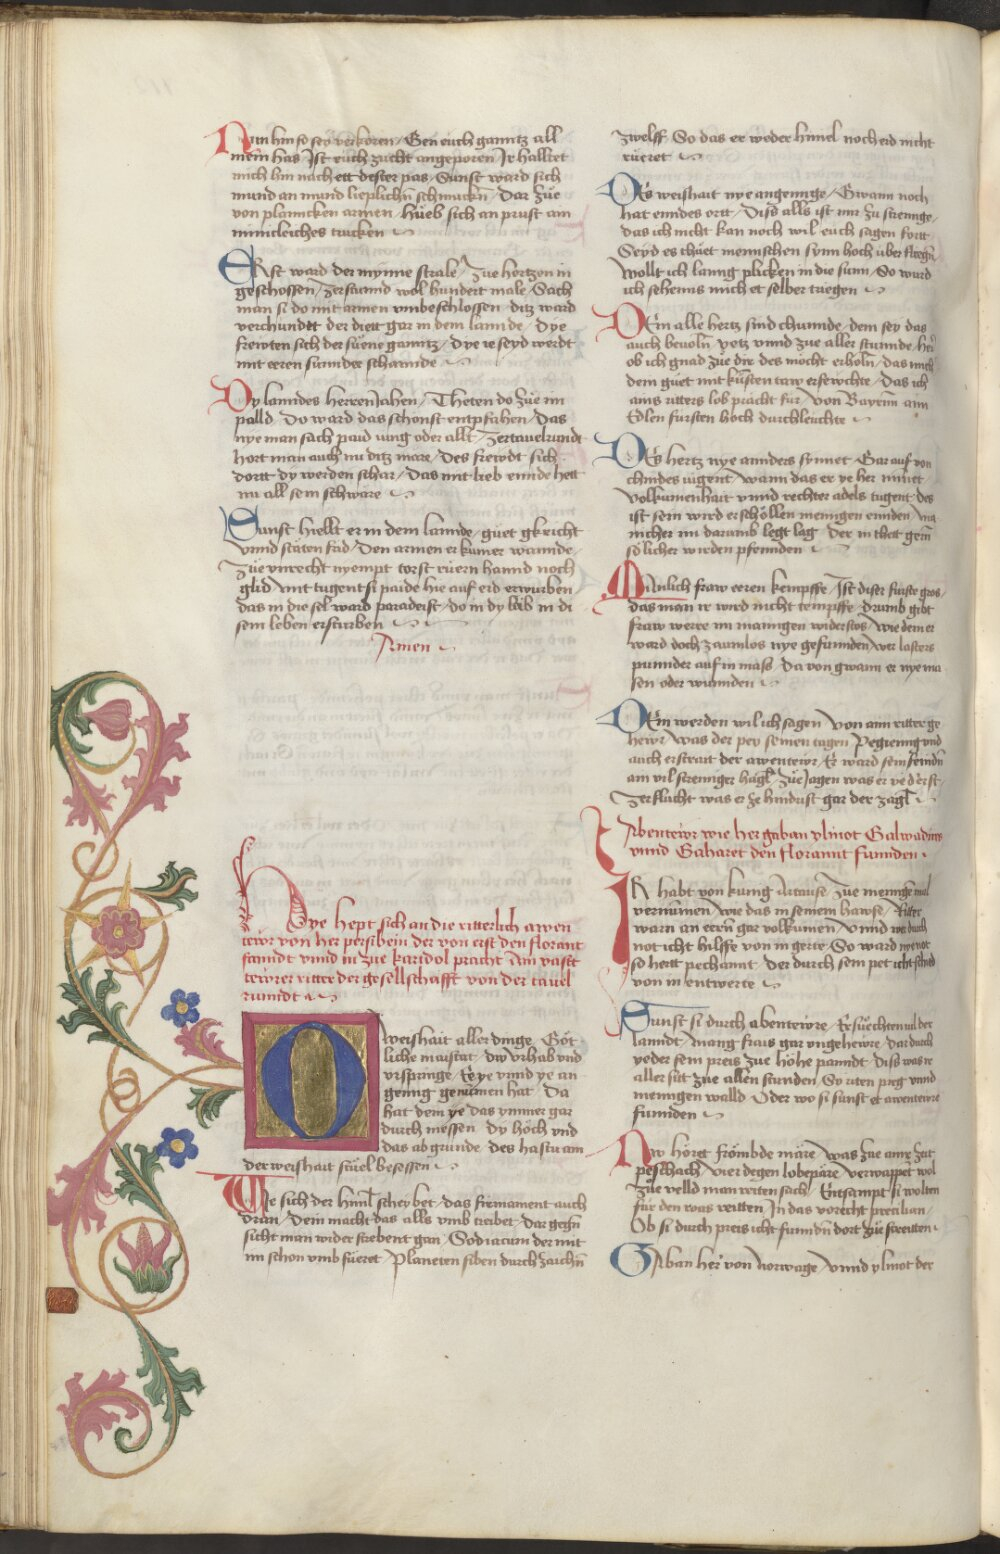 Nun hin so sey verkoren / Gen euch ganntz all
mein has Ist euch zucht angeporen Ir halltet
mich hin nach ett dester pas / Sunst ward sich
mund an mund lieplichn schmuckn / Dar zue
von planncken armen / hueb sich an prust an
minicleiches trucken
ERst ward der mynne strale / Zue hertzen in
geschossen / zersannd wol hundert male / Sach
man si do mit armen umbeschlossen / ditz ward
verchundet der diett gar in dem lannde / Dye
frewten sich der suene ganntz / dye ie seyd werdt
mit eeren sunnder schannde
Dy lanndes herren Jahen / Theten do zue im
palld / Do ward das schonst entpfahen / Das
nye man sach paid iung oder allt / Zertauelrundt
hort man auch nu ditz mare / des frewdt sich
dortt dy werden schar / Das mit lieb ennde hett
nu all sein schware
Sunst hiellt er in dem lannde / guet gericht
vnnd staten frid / Den armen er kumer wannde /
Zue vnrecht nyempt torst ruern hannd noch
glid / mit tugent si paide hie auf erd erwurben
das in die sel ward paradeist / do in dy leib in di
sem leben ersturben
Amen
Hye hept sich an die ritterlich awen
tewr von her persibein der von erst den florant
fanndt vnnd in zue karidol pracht Am vastt
tewrer ritter der gesellschafft von der tauel
runndt
O weishait aller dinge / Got
liche maistat / diw vrhab vnd
vrspringe / Ee ye vnnd ye an
genng genumen hat / Da
hat dein ye das ymmer gar
durch messen / dy hoch vnd
das ab grunde / des hastu am
der weishait stuel besessen
Wie sich der himl scheibet / das firmament auch
dran / Dein macht das alls vmb treibet / Dar gegn
sicht man wider strebent gan / Sodiacum der mit
im schon vmb fueret / Planeten siben durch zaichn
zwelff / So das er weder himel noch erd nicht
rueret
Der weishait nye angennge / Gwann noch
hat enndes ortt / Diss alls ist mir zu strennge /
das ich nicht kan noch wil euch sagen fortt
Seyd es thuet mennschen synn hoch uber
Wollt ich lanng plicken in die sunn / So wurd
ich sehenns mich et selber triegen
Dem alle hertz sind chunnde / dem sey das
auch beuoln yetz vnnd zue aller stunnde /
ob ich gnad zue dir des mocht erholn / das mich
dem guet mit kunsten taw erfewchte / Das ich
ains ritters lob pracht fur / von Bayrnn ain
Edlen fursten hoch durchleuchte
Des hertz nye annders synnet / Gar auf von
chindes iugent / wann das er ye her mynet /
Volkumenhait vnnd rechter adels tugent / des
ist sein wird erschollen menngen ennden /
nicher im darumb legt lag / Der in thett gern
solicher wirden pfennden
Minlich fraw eeren kempffe / Ist diser furste gros /
das man ir wird nicht tempffe / drumb gibt
fraw werre im manngen widerstos / wie dem er
ward doch zaumlos nye gefunnden / wer lasters
punnder auf in mass / da von gwann er nye ma
sen oder wunnden
Dem werden wil ich sagen / Von ainn ritter ge
hewr / was der pey seinen tagen / Pegienng vnd
auch erstrait der awentewr / Er ward sein
am vil strennger hagl / Zue Jagen was er ye d'erst
Zer flucht was er ye hindrist gar der zagl
Abentewr wie her gaban ylinot Galwadins
vnnd Gaharet den florannt funnden
IR habt von kunig Artause / Zue mennge mal
vernumen / wie das in seinem hawse / Ritter
warn an eern gar volkumen / Vnnd wa durch
not icht hilffe von in gerte / So ward nye not
so hertt pechannt / der durch sein pet icht schied
von in entwerte
Sunst si durch abentewre / Ersuechten all der
lanndt / manng frais gar vngehewre / dar durch
yeder sein preis zue hohe panndt / Diss was ir
aller sitt zue allen stunden / So iren preg vnnd
menngen walld / Oder wo si sunst et awentewre
funnden
Nw horet frombde mare / was zue ainr zeit
peschach / vier degen lobepare / verwappet wol
zue velld man reiten sach / Entsampt si wolten
fur den was reitten / In das vorecht precilian /
Ob si durch preis icht funndn dort zue streitten
GAban her von Norwage / vnnd ylinot der